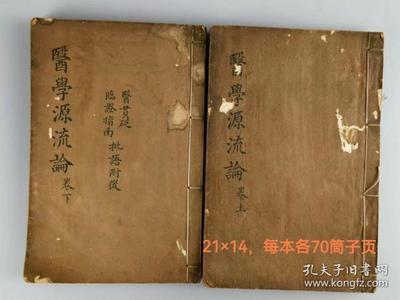 醫學源流論 卷下
醫貫砭
臨證指南 批語附後
醫學源流論 卷上
21×14，每本各70筒子页
孔夫子旧书网
www.kongfz.com